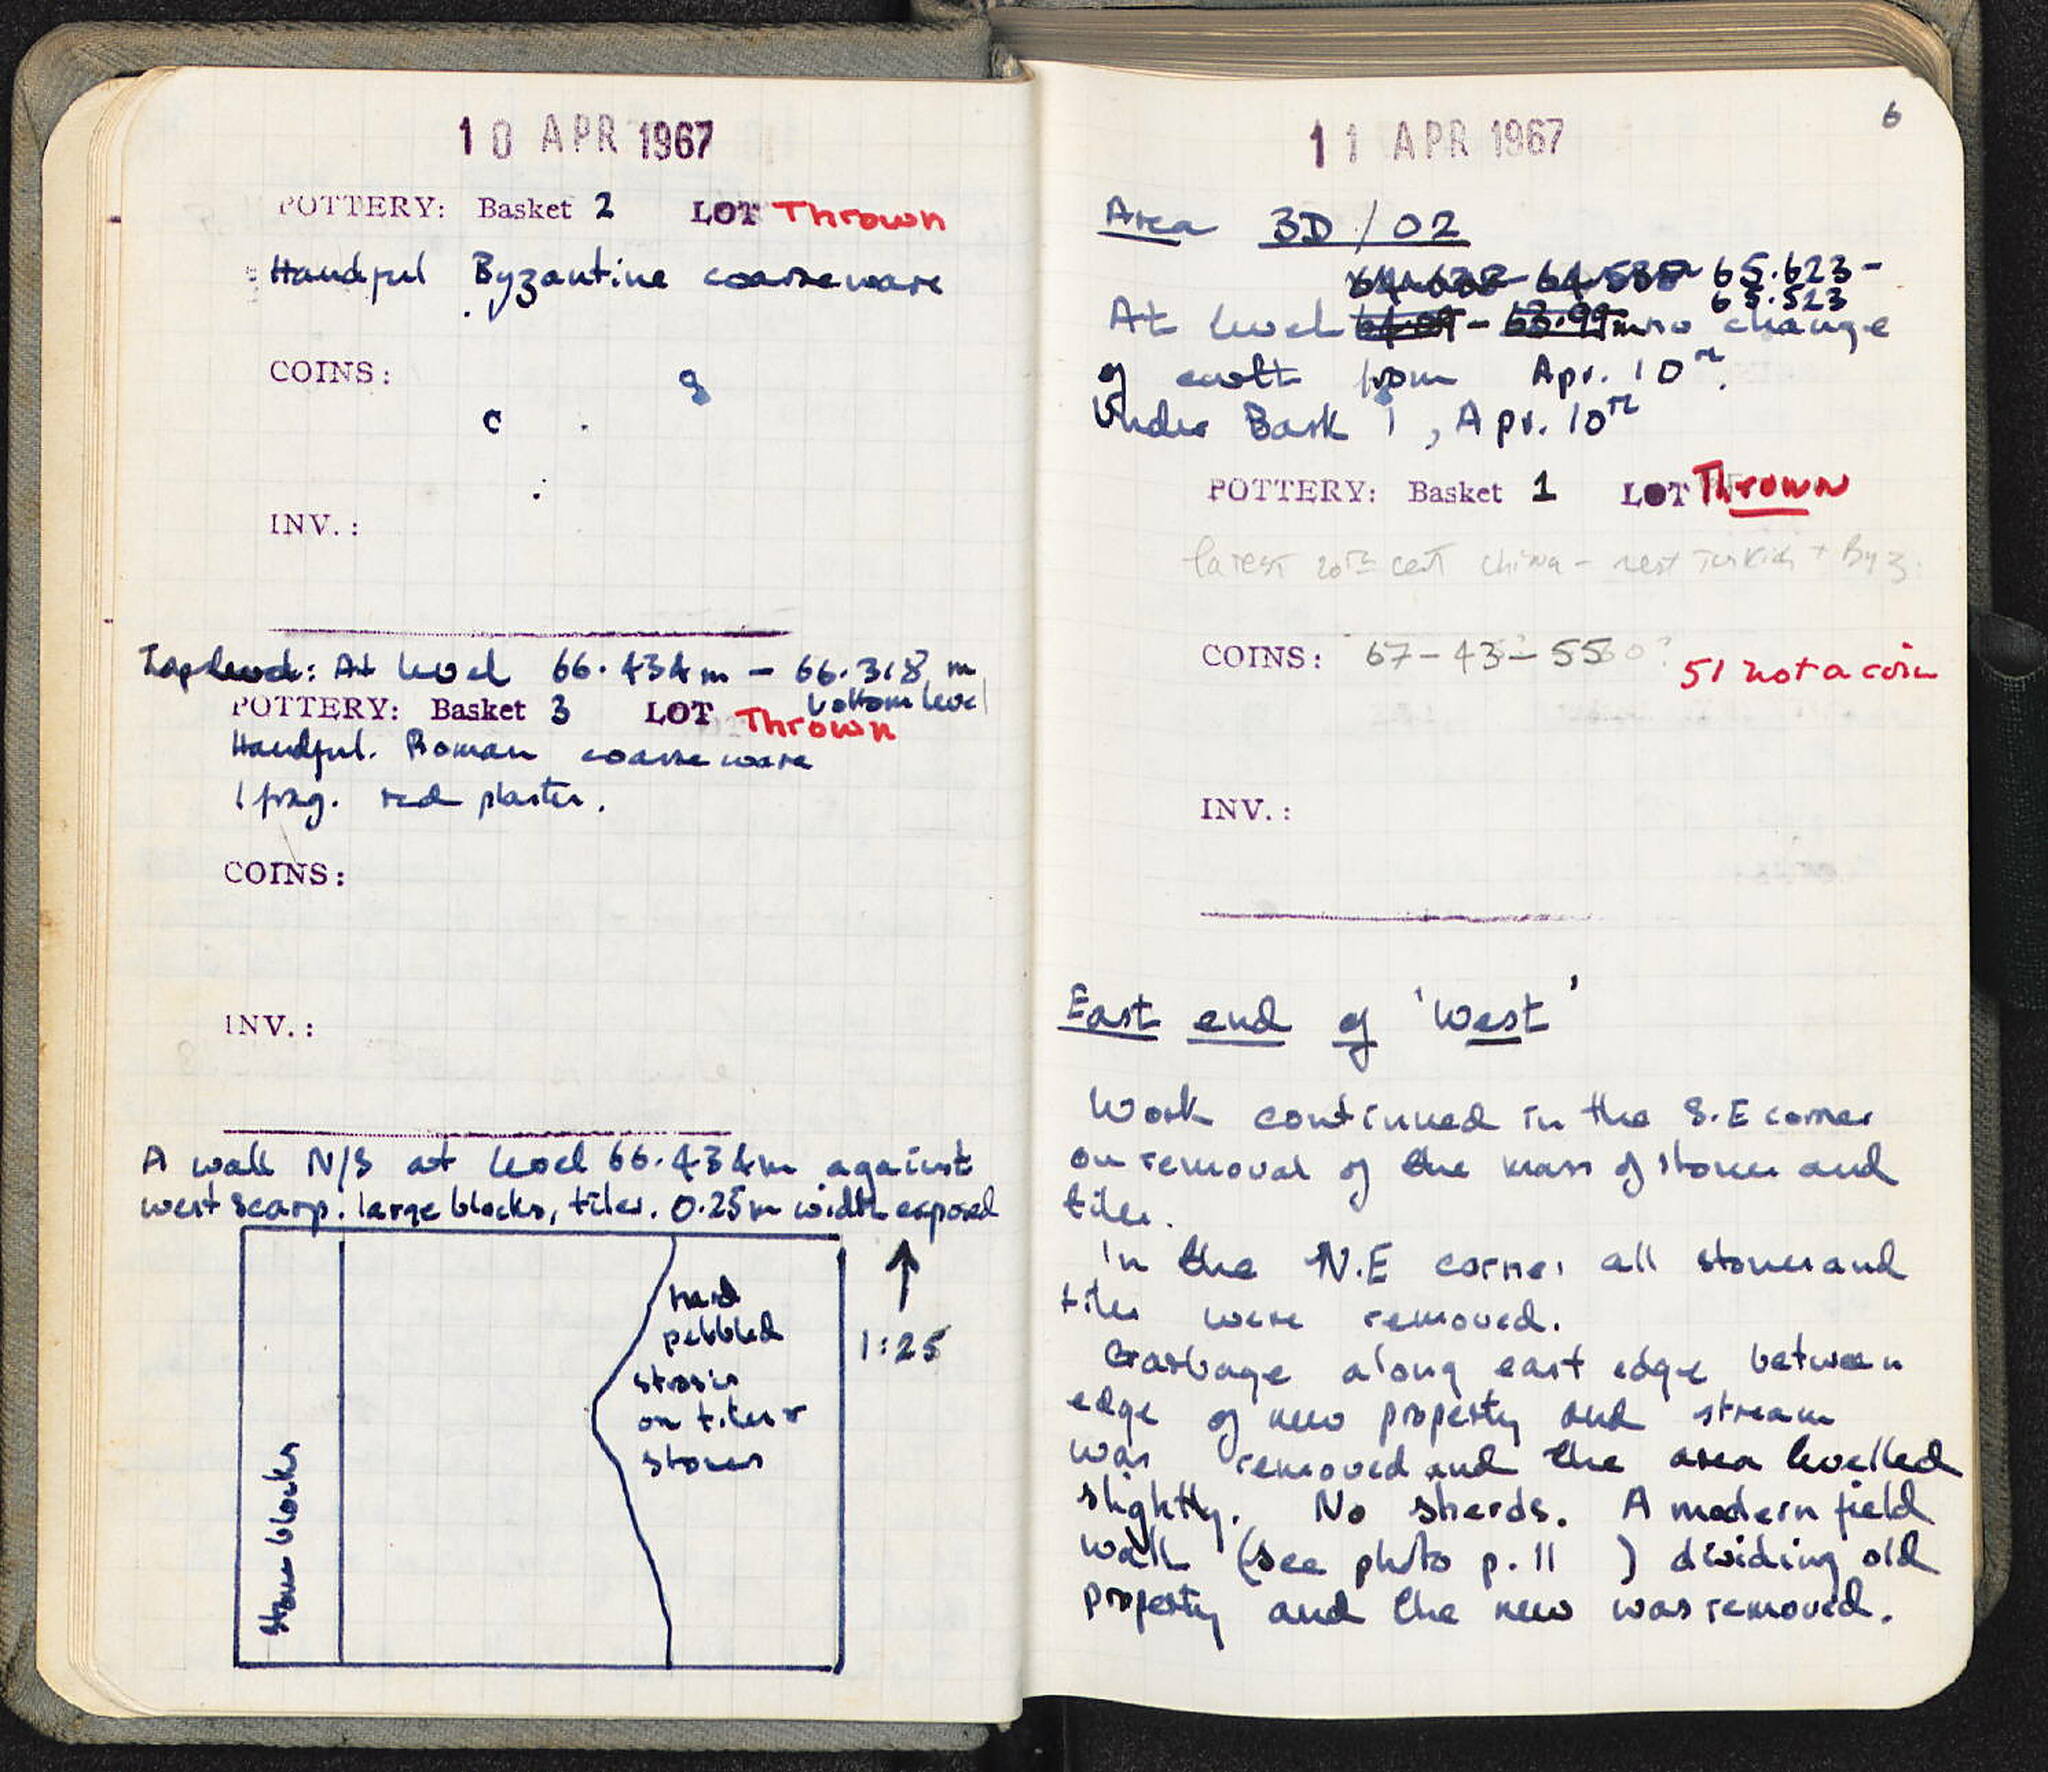 10 APR 1967
POTTERY: Basket 2 LOT Thrown
Handful Byzantine coarseware
COINS:
INV.:
Top level: At level 66.434m – 66.318 m
bottom level
POTTERY: Basket 3 LOT Thrown
Handful. Roman coarse ware
1 frag. red plaster.
COINS:
INV.:
A wall N/S at level 66.434m against
west scarp. large blocks, tiles. 0.25m width exposed
hard
pebbled
strosis
on tiles +
stones
1:25
Stone blocks
6
11 APR 1967
Area 3D/02
65.623–
65.523
At level 64.09 – 63.99m no change
of earth from Apr. 10th.
Under Bask 1, Apr. 10th
POTTERY: Basket 1 LOT Thrown
latest 20th cent china – rest Turkish + Byz.
COINS: 67–43–55
51 not a coin
INV.:
East end of 'West'
Work continued in the S.E corner
on removal of the mass of stones and
tiles.
In the N.E corner all stones and
tiles were removed.
Garbage along east edge between
edge of new property and stream
was removed and the area levelled
slightly. No sherds. A modern field
wall (see photo p. 11 ) dividing old
property and the new was removed.